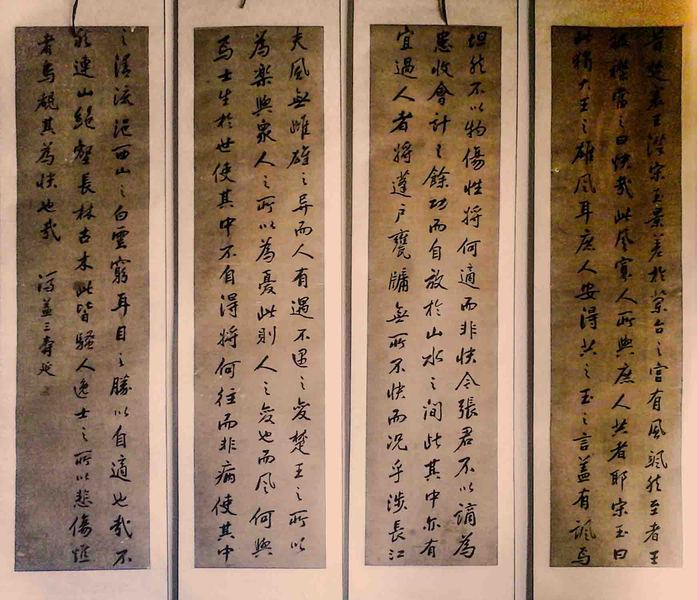 昔楚襄王從宋玉景差於蘭臺之宮有風颯然至者王
披襟當之曰快哉此風寡人所與庶人共者耶宋玉曰
此獨大王之雄風耳庶人安得共之玉之言蓋有諷焉
坦然不以物傷性將何適而非快今張君不以謫為
患收會計之餘功而自放於山水之間此其中亦有
宜過人者將蓬戶甕牖無所不快而況乎涉長江
夫風無雌雄之异而人有遇不遇之變楚王之所以
為樂與衆人之所以為憂此則人之變也而風何與
焉士生於世使其中不自得將何往而非病使其中
之清流浥西山之白雲窮耳目之勝以自適也哉不
然連山絕壑長林古木此皆騷人逸士之所以悲傷憔
者烏覩其為快也哉